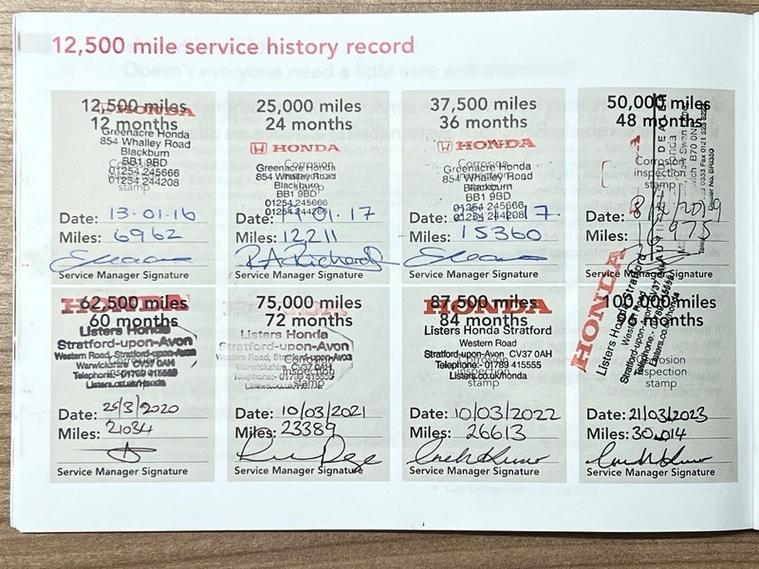 12,500 mile service history record
12,500 miles
12 months
HONDA
Greenacre Honda
854 Whalley Road
Blackburn
BB1 9BD
01254 245666
01254 244208
stamp
Date: 13.01.16
Miles: 6962
Service Manager Signature
25,000 miles
24 months
HONDA
Corrosion
Greenacre Honda
854 Whalley Road
Blackburn
BB1 9BD
01254 245666
stamp
Date: 11.01.17
Miles: 12,211
R A Richards
Service Manager Signature
37,500 miles
36 months
HONDA
Corrosion
Greenacre Honda
854 Whalley Road
Blackburn
BB1 9BD
01254 245666
01254 244208
Date: 17.
Miles: 15360
Service Manager Signature
50,000 miles
48 months
Corrosion
inspection
stamp
Date: 2019
Miles: 16975
Service Manager Signature
62,500 miles
60 months
HONDA
Listers Honda
Stratford-upon-Avon
Western Road, Stratford-upon-Avon
Warwickshire CV37 0AH
Telephone:- 01789 415555
Listers.co.uk/honda
Date: 25/3/2020
Miles: 21034
Service Manager Signature
75,000 miles
72 months
HONDA
Listers Honda
Stratford-upon-Avon
Western Road, Stratford-upon-Avon
Warwickshire CV37 0AH
Telephone:- 01789 415555
inspection
stamp
Date: 10/03/2021
Miles: 23389
Service Manager Signature
87,500 miles
84 months
HONDA
Listers Honda Stratford
Western Road
Stratford-upon-Avon CV37 0AH
Telephone:- 01789 415555
Listers.co.uk/honda
stamp
Date: 10/03/2022
Miles: 26613
Service Manager Signature
100,000 miles
96 months
HONDA
Listers Honda Stratford
Western Road
Stratford-upon-Avon CV37 0AH
Telephone:- 01789 415555
Listers.co.uk/honda
Corrosion
inspection
stamp
Date: 21/03/2023
Miles: 30,014
Service Manager Signature